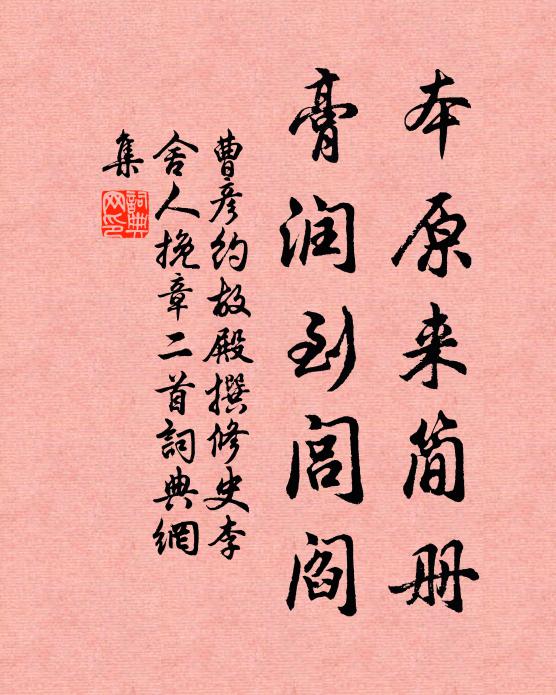 本原来简册
膏润到闾阎
曹彦约故殿撰修史李
舍人挽章二首詞典網
集
詞典
网印